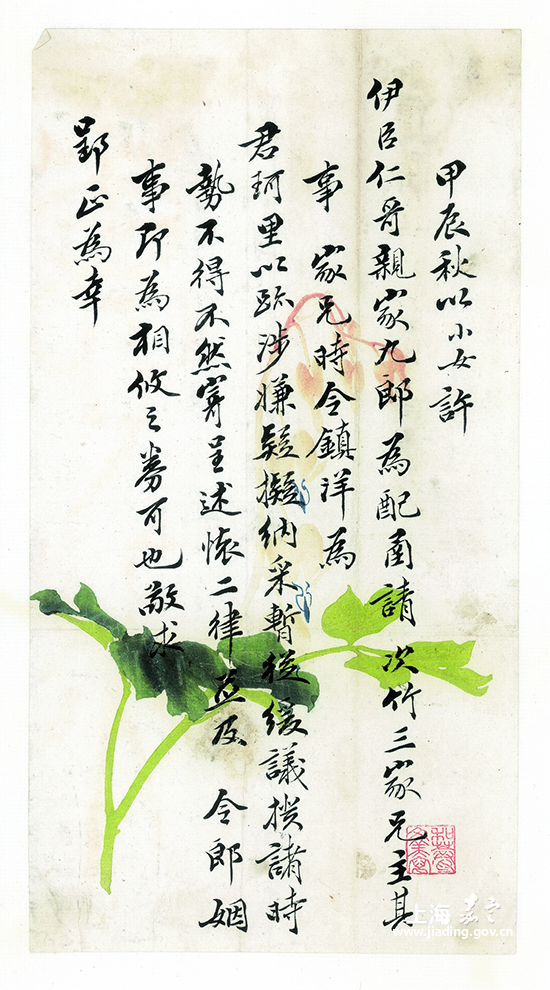 甲辰秋以小女許
伊臣仁哥親家九郎為配面請次竹三家兄主其
事 家兄時令鎮洋為
君珂里以跡涉嫌疑擬納采暫從緩議揆諸時
勢不得不然寄呈述懷二律並及 令郎姻
事即為相攸之券可也敬求
郢正為幸
上海 嘉定
www.jiading.gov.cn